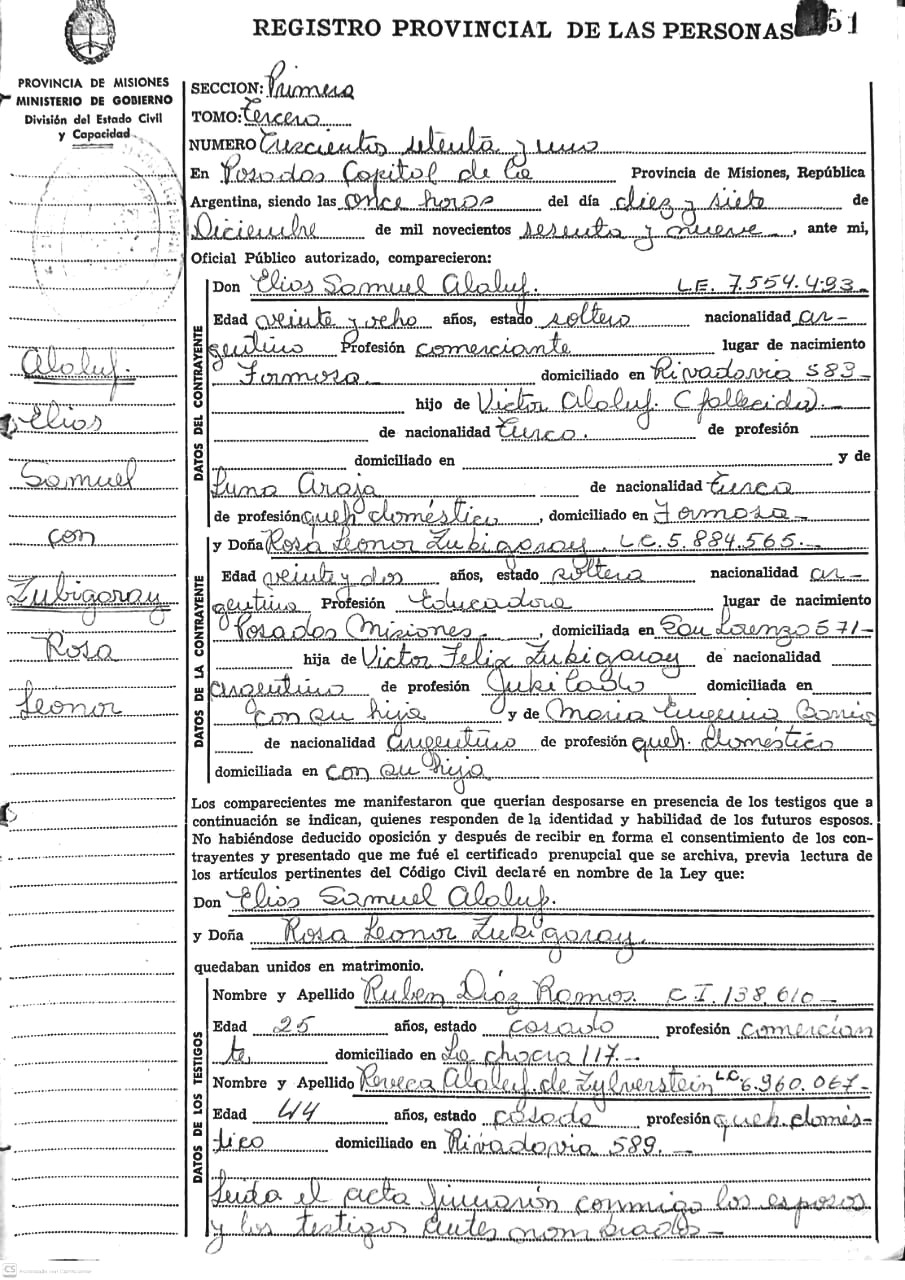 REGISTRO PROVINCIAL DE LAS PERSONAS 151
PROVINCIA DE MISIONES
MINISTERIO DE GOBIERNO
División del Estado Civil
y Capacidad
SECCION: Primera
TOMO: Tercero
NUMERO Trescientos setenta y uno
En Posadas Capital de la Provincia de Misiones, República
Argentina, siendo las once horas del día diez y siete de
Diciembre de mil novecientos sesenta y nueve, ante mi,
Oficial Público autorizado, comparecieron:
DATOS DEL CONTRAYENTE
Don Elias Samuel Alaluf. L.E. 7.554.493-
Edad veinte y ocho años, estado soltero nacionalidad ar-
gentino Profesión comerciante lugar de nacimiento
Formosa domiciliado en Rivadavia 583-
hijo de Victor Alaluf. (fallecido).-
de nacionalidad Turco. de profesión
domiciliado en y de
Luna Araja de nacionalidad Turca
de profesión queh. doméstico, domiciliado en Formosa-
DATOS DE LA CONTRAYENTE
y Doña Rosa Leonor Zubigaray. L.C. 5.884.565.-
Edad veinte y dos años, estado soltera nacionalidad ar-
gentina Profesión Educadora lugar de nacimiento
Posadas Misiones, domiciliada en San Lorenzo 571-
hija de Victor Felix Zubigaray de nacionalidad
argentino de profesión Jubilado domiciliada en
con su hija y de Maria Eugenia Barrios
de nacionalidad argentino de profesión queh. doméstico
domiciliada en con su hija
Alaluf.
Elias
Samuel
con
Zubigaray
Rosa
Leonor
Los comparecientes me manifestaron que querían desposarse en presencia de los testigos que a
continuación se indican, quienes responden de la identidad y habilidad de los futuros esposos.
No habiéndose deducido oposición y después de recibir en forma el consentimiento de los con-
trayentes y presentado que me fué el certificado prenupcial que se archiva, previa lectura de
los artículos pertinentes del Código Civil declaré en nombre de la Ley que:
Don Elias Samuel Alaluf.
y Doña Rosa Leonor Zubigaray.
quedaban unidos en matrimonio.
DATOS DE LOS TESTIGOS
Nombre y Apellido Ruben Díaz Ramos. C.I. 138.610-
Edad 25 años, estado casado profesión comercian
te. domiciliado en La chacra 117.-
Nombre y Apellido Reveca Alaluf de Zylverstein L.C. 6.960.067-
Edad 44 años, estado casada profesión queh. domés-
tico domiciliado en Rivadavia 589.-
Leida el acta firmarón conmigo los esposos
y los testigos antes nombrados-
CS